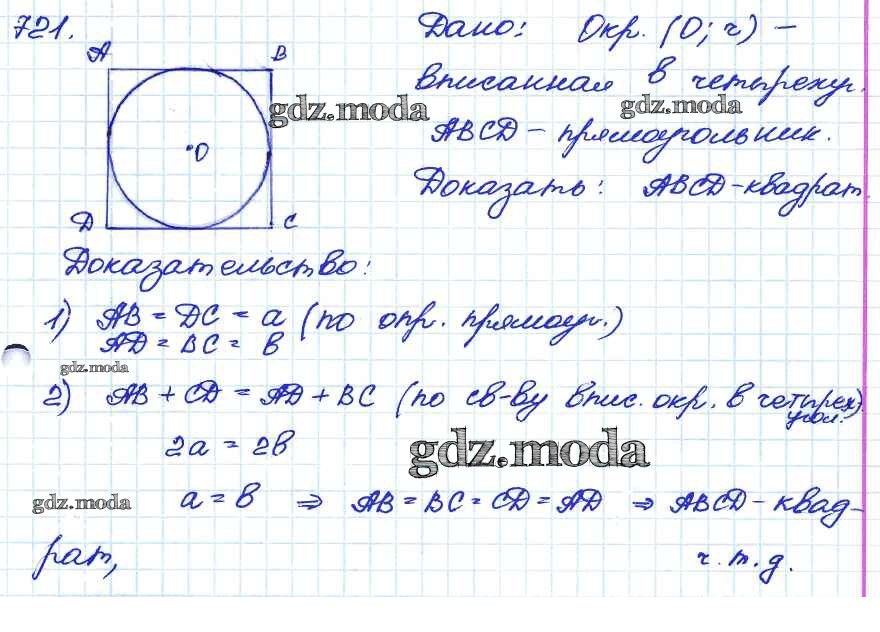 721.
Дано: Окр. (О; r) –
вписанная в четыреху.
ABCD – прямоугольник.
Доказать: ABCD – квадрат.
A B
O
D C
gdz.moda
gdz.moda
Доказательство:
1) AB = DC = a (по опр. прямоуг.)
AD = BC = b
gdz.moda
2) AB + CD = AD + BC (по св-ву впис. окр. в четырех)
угол.
2a = 2b
gdz.moda
a = b ⇒ AB = BC = CD = AD ⇒ ABCD – квад-
gdz.moda
рат,
ч.т.д.